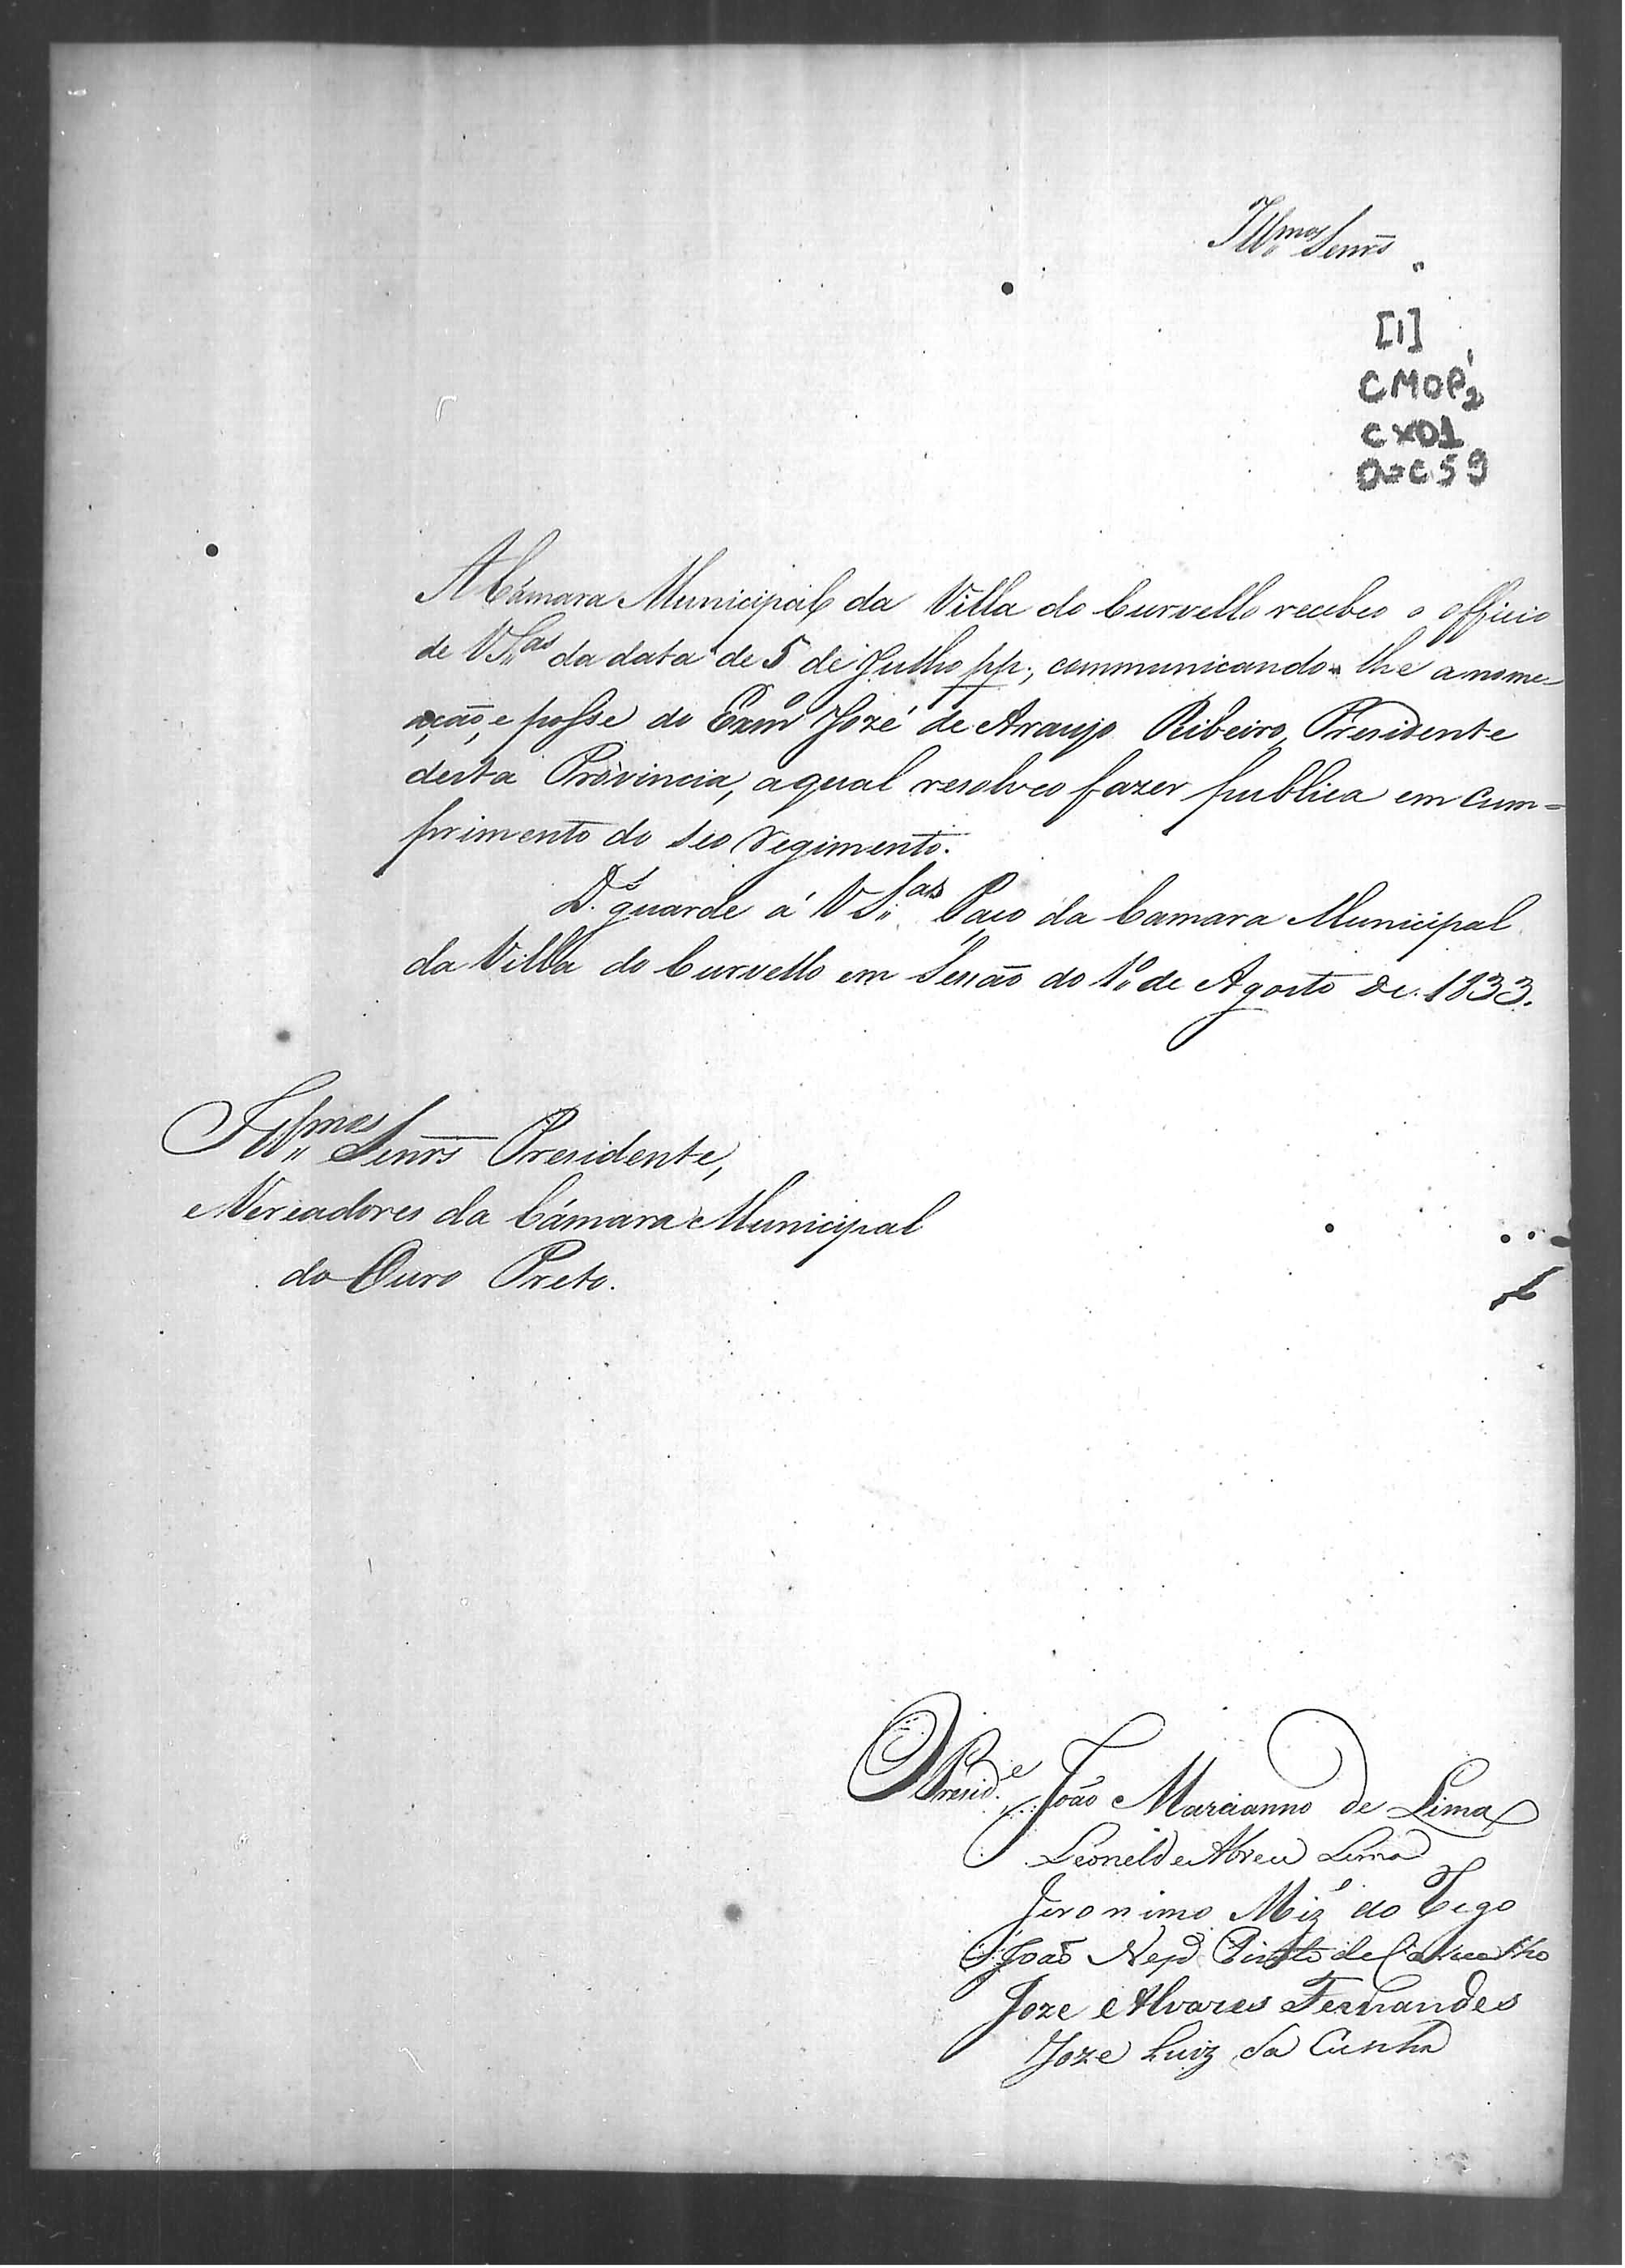 Ill.mos Senrs
[1]
CMOP2
CX01
Doc 59
A Cámara Municipal da Villa do Curvello recebeo o officio
de V.S.as da data de 5 de Julho pp., communicando-lhe a nome-
ação, e posse do Exm.o Jozé de Araujo Ribeiro, Presidente
desta Provincia, a qual resolveo fazer publica em cum=
primento do seo regimento.
D.s guarde á V.S.as Paço da Camara Municipal
da Villa do Curvello em Sessão do 1.o de Agosto de 1833.
Ill.mos Senrs Presidente,
e Vereadores da Cámara Municipal
do Ouro Preto.
O Presid.e João Marcianno de Lima
Leonel de Abreu Lima
Jeronimo Miz do
João Nep.o Pinto de Carvalho
Joze Alvares Fernandes
Joze Luiz da Cunha